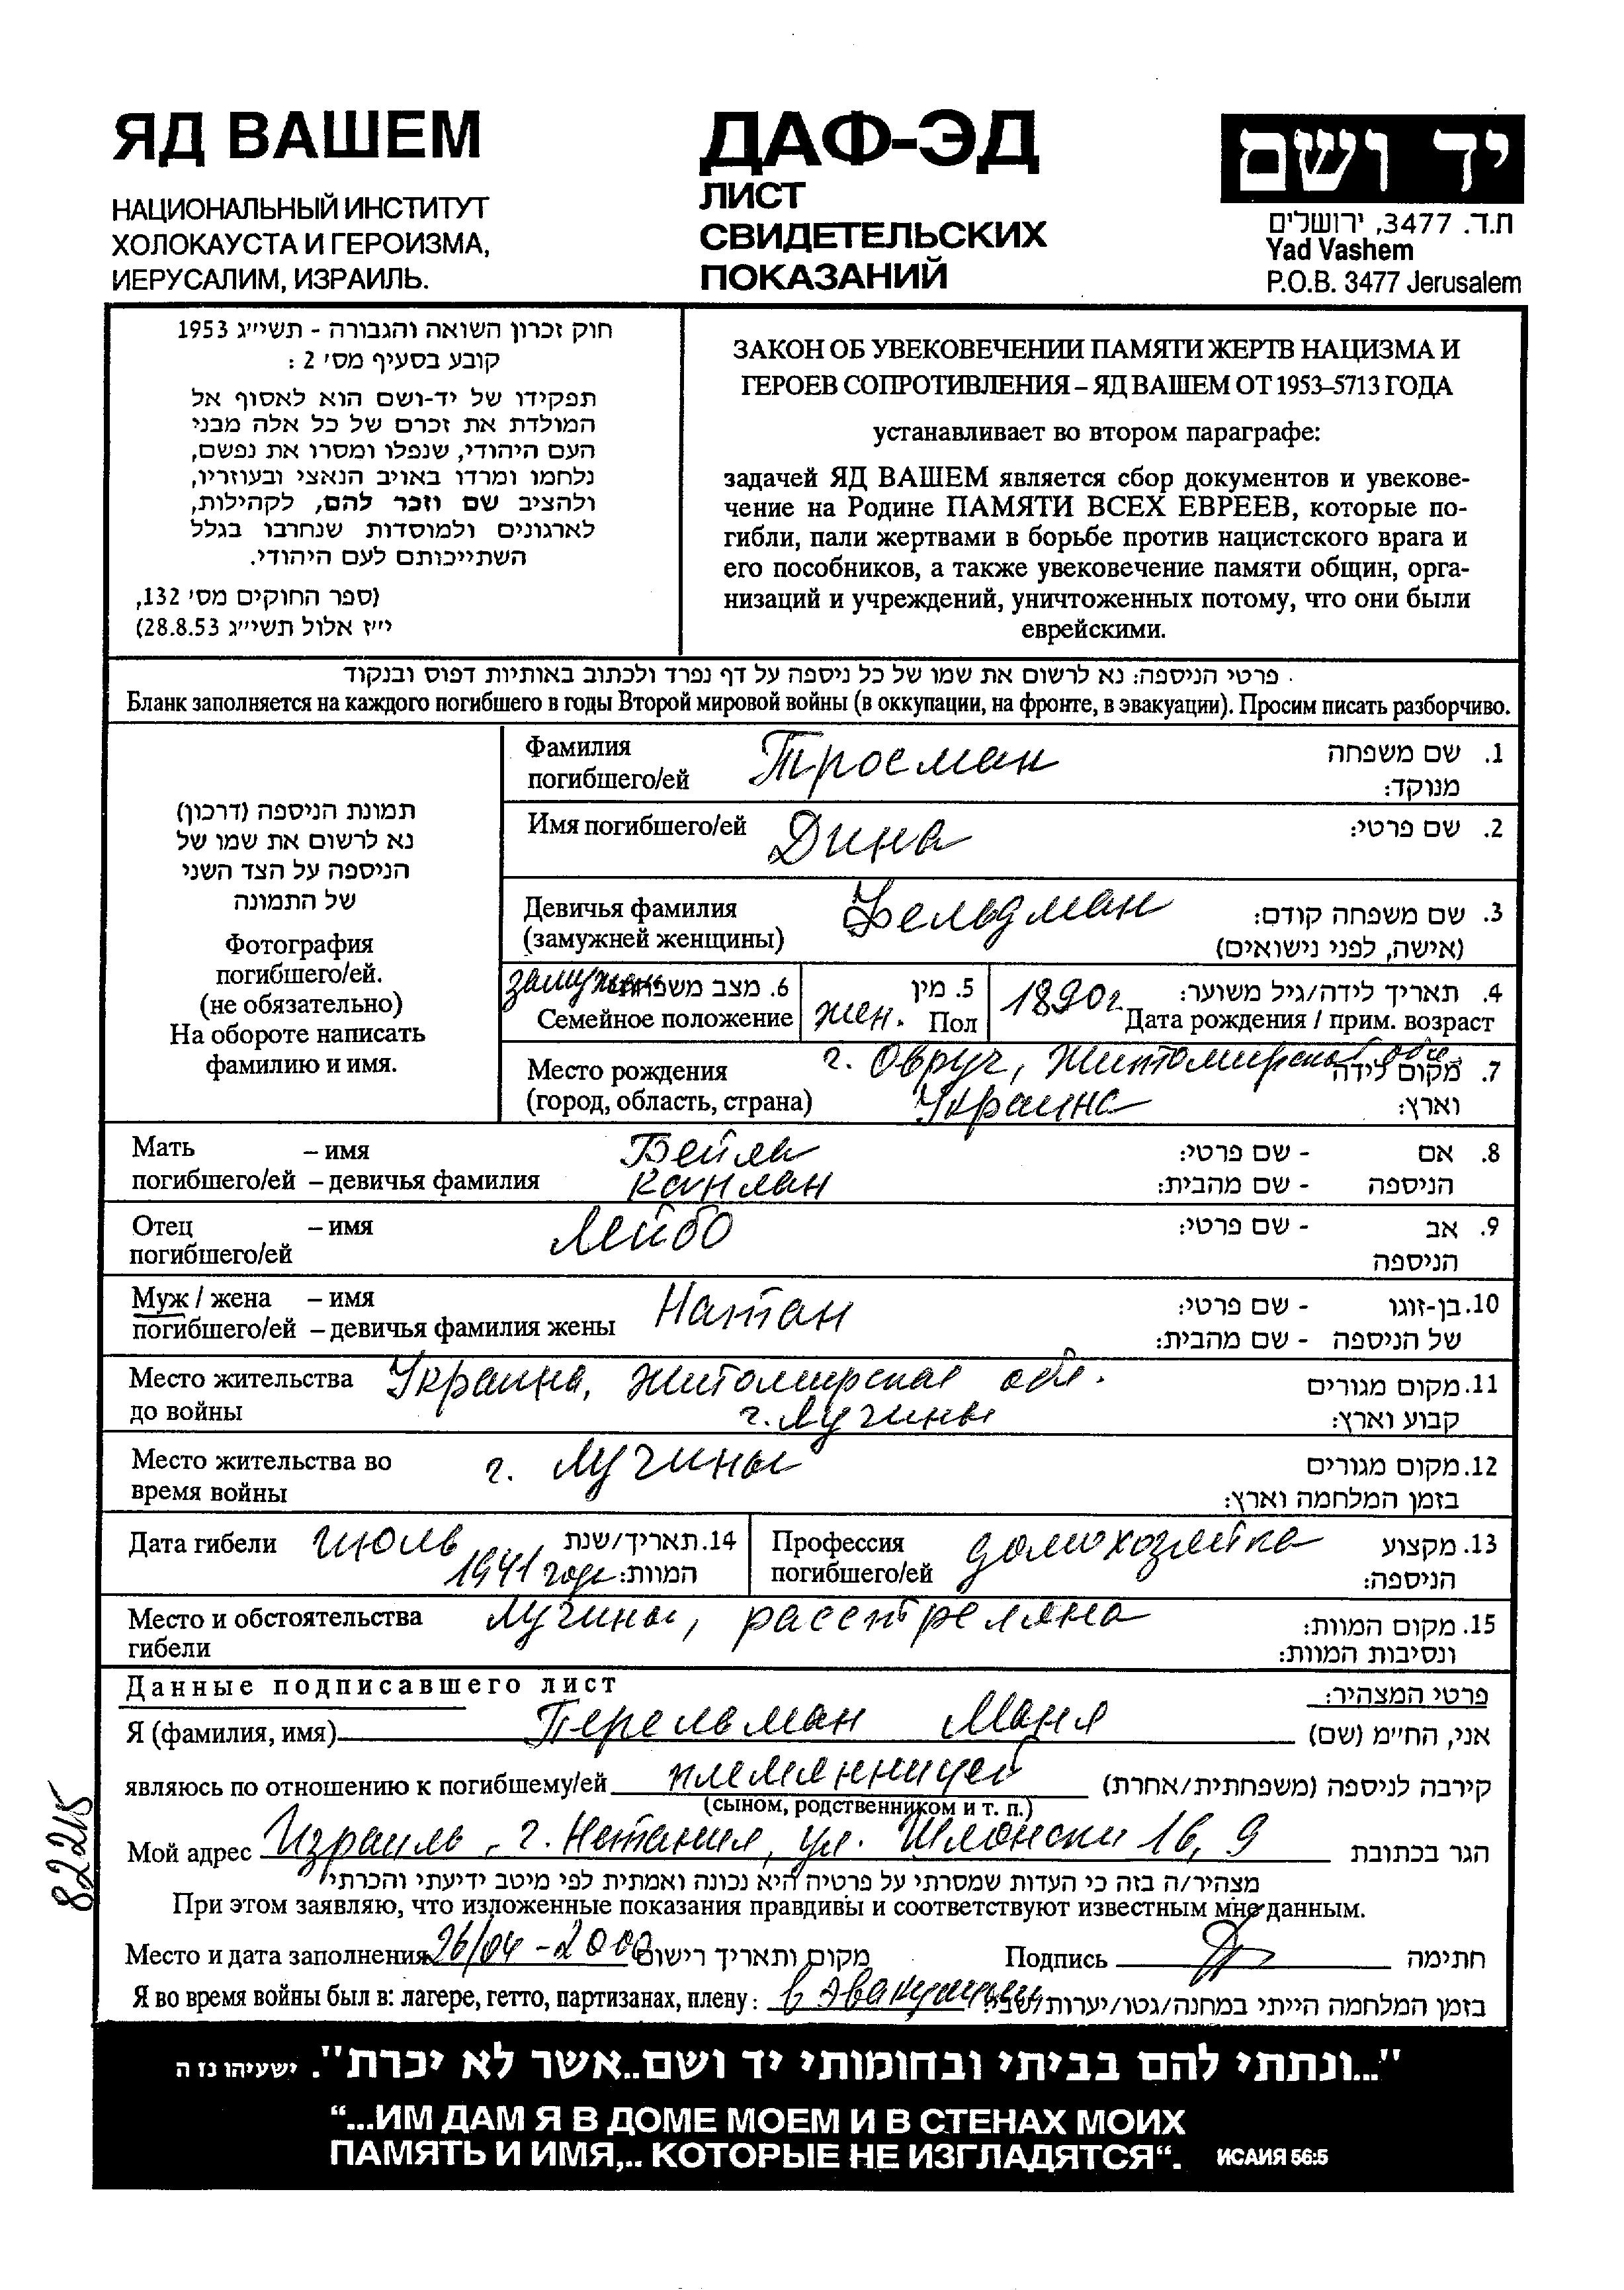 ЯД ВАШЕМ
НАЦИОНАЛЬНЫЙ ИНСТИТУТ
ХОЛОКАУСТА И ГЕРОИЗМА,
ИЕРУСАЛИМ, ИЗРАИЛЬ.
ДАФ-ЭД
ЛИСТ
СВИДЕТЕЛЬСКИХ
ПОКАЗАНИЙ
יד ושם
ת.ד. 3477, ירושלים
Yad Vashem
P.O.B. 3477 Jerusalem
חוק זכרון השואה והגבורה - תשי״ג 1953
קובע בסעיף מס׳ 2 :
תפקידו של יד-ושם הוא לאסוף אל
המולדת את זכרם של כל אלה מבני
העם היהודי, שנפלו ומסרו את נפשם,
נלחמו ומרדו באויב הנאצי ובעוזריו,
ולהציב שם וזכר להם, לקהילות,
לארגונים ולמוסדות שנחרבו בגלל
השתייכותם לעם היהודי.
(ספר החוקים מס׳ 132,
י״ז אלול תשי״ג 28.8.53)
ЗАКОН ОБ УВЕКОВЕЧЕНИИ ПАМЯТИ ЖЕРТВ НАЦИЗМА И
ГЕРОЕВ СОПРОТИВЛЕНИЯ – ЯД ВАШЕМ ОТ 1953–5713 ГОДА
устанавливает во втором параграфе:
задачей ЯД ВАШЕМ является сбор документов и увекове-
чение на Родине ПАМЯТИ ВСЕХ ЕВРЕЕВ, которые по-
гибли, пали жертвами в борьбе против нацистского врага и
его пособников, а также увековечение памяти общин, орга-
низаций и учреждений, уничтоженных потому, что они были
еврейскими.
פרטי הניספה: נא לרשום את שמו של כל ניספה על דף נפרד ולכתוב באותיות דפוס ובנקוד
Бланк заполняется на каждого погибшего в годы Второй мировой войны (в оккупации, на фронте, в эвакуации). Просим писать разборчиво.
תמונת הניספה (דרכון)
נא לרשום את שמו של
הניספה על הצד השני
של התמונה
Фотография
погибшего/ей.
(не обязательно)
На обороте написать
фамилию и имя.
Фамилия Тросман 1. שם משפחה
погибшего/ей מנוקד:
Имя погибшего/ей Дина 2. שם פרטי:
Девичья фамилия Фельдман 3. שם משפחה קודם:
(замужней женщины) (אישה, לפני נישואים)
замужем 6. מצב משפחתי
Семейное положение
5. מין
жен. Пол
1890г. 4. תאריך לידה/גיל משוער:
Дата рождения / прим. возраст
Место рождения г. Овруч, Житомирская обл. 7. מקום לידה
(город, область, страна) Украина וארץ:
Мать – имя Бейла 8. אם - שם פרטי:
погибшего/ей – девичья фамилия Каплан הניספה - שם מהבית:
Отец – имя Лейбо 9. אב - שם פרטי:
погибшего/ей הניספה
Муж / жена – имя Натан 10. בן-זוגו - שם פרטי:
погибшего/ей – девичья фамилия жены של הניספה - שם מהבית:
Место жительства Украина, Житомирская обл. 11. מקום מגורים
до войны г. Лучины קבוע וארץ:
Место жительства во г. Лучины 12. מקום מגורים
время войны בזמן המלחמה וארץ:
Дата гибели июль 14. תאריך/שנת
1941 года המוות:
Профессия домохозяйка 13. מקצוע
погибшего/ей הניספה:
Место и обстоятельства Лучины, расстреляна 15. מקום המוות:
гибели ונסיבות המוות:
Данные подписавшего лист פרטי המצהיר:
Я (фамилия, имя) Перельман Маня אני, החי״מ (שם)
являюсь по отношению к погибшему/ей племянницей קירבה לניספה (משפחתית/אחרת)
(сыном, родственником и т. п.)
Мой адрес Израиль, г. Нетания, ул. Шлонски 16, 9 הגר בכתובת
מצהיר/ה בזה כי העדות שמסרתי על פרטיה היא נכונה ואמתית לפי מיטב ידיעתי והכרתי
При этом заявляю, что изложенные показания правдивы и соответствуют известным мне данным.
Место и дата заполнения 26/04-2000 מקום ותאריך רישום Подпись חתימה
Я во время войны был в: лагере, гетто, партизанах, плену: в эвакуации בזמן המלחמה הייתי במחנה/גטו/יערות/שבי:
82215
"...ונתתי להם בביתי ובחומותי יד ושם..אשר לא יכרת". ישעיהו נז ה
“...ИМ ДАМ Я В ДОМЕ МОЕМ И В СТЕНАХ МОИХ
ПАМЯТЬ И ИМЯ,.. КОТОРЫЕ НЕ ИЗГЛАДЯТСЯ“. ИСАИЯ 56:5